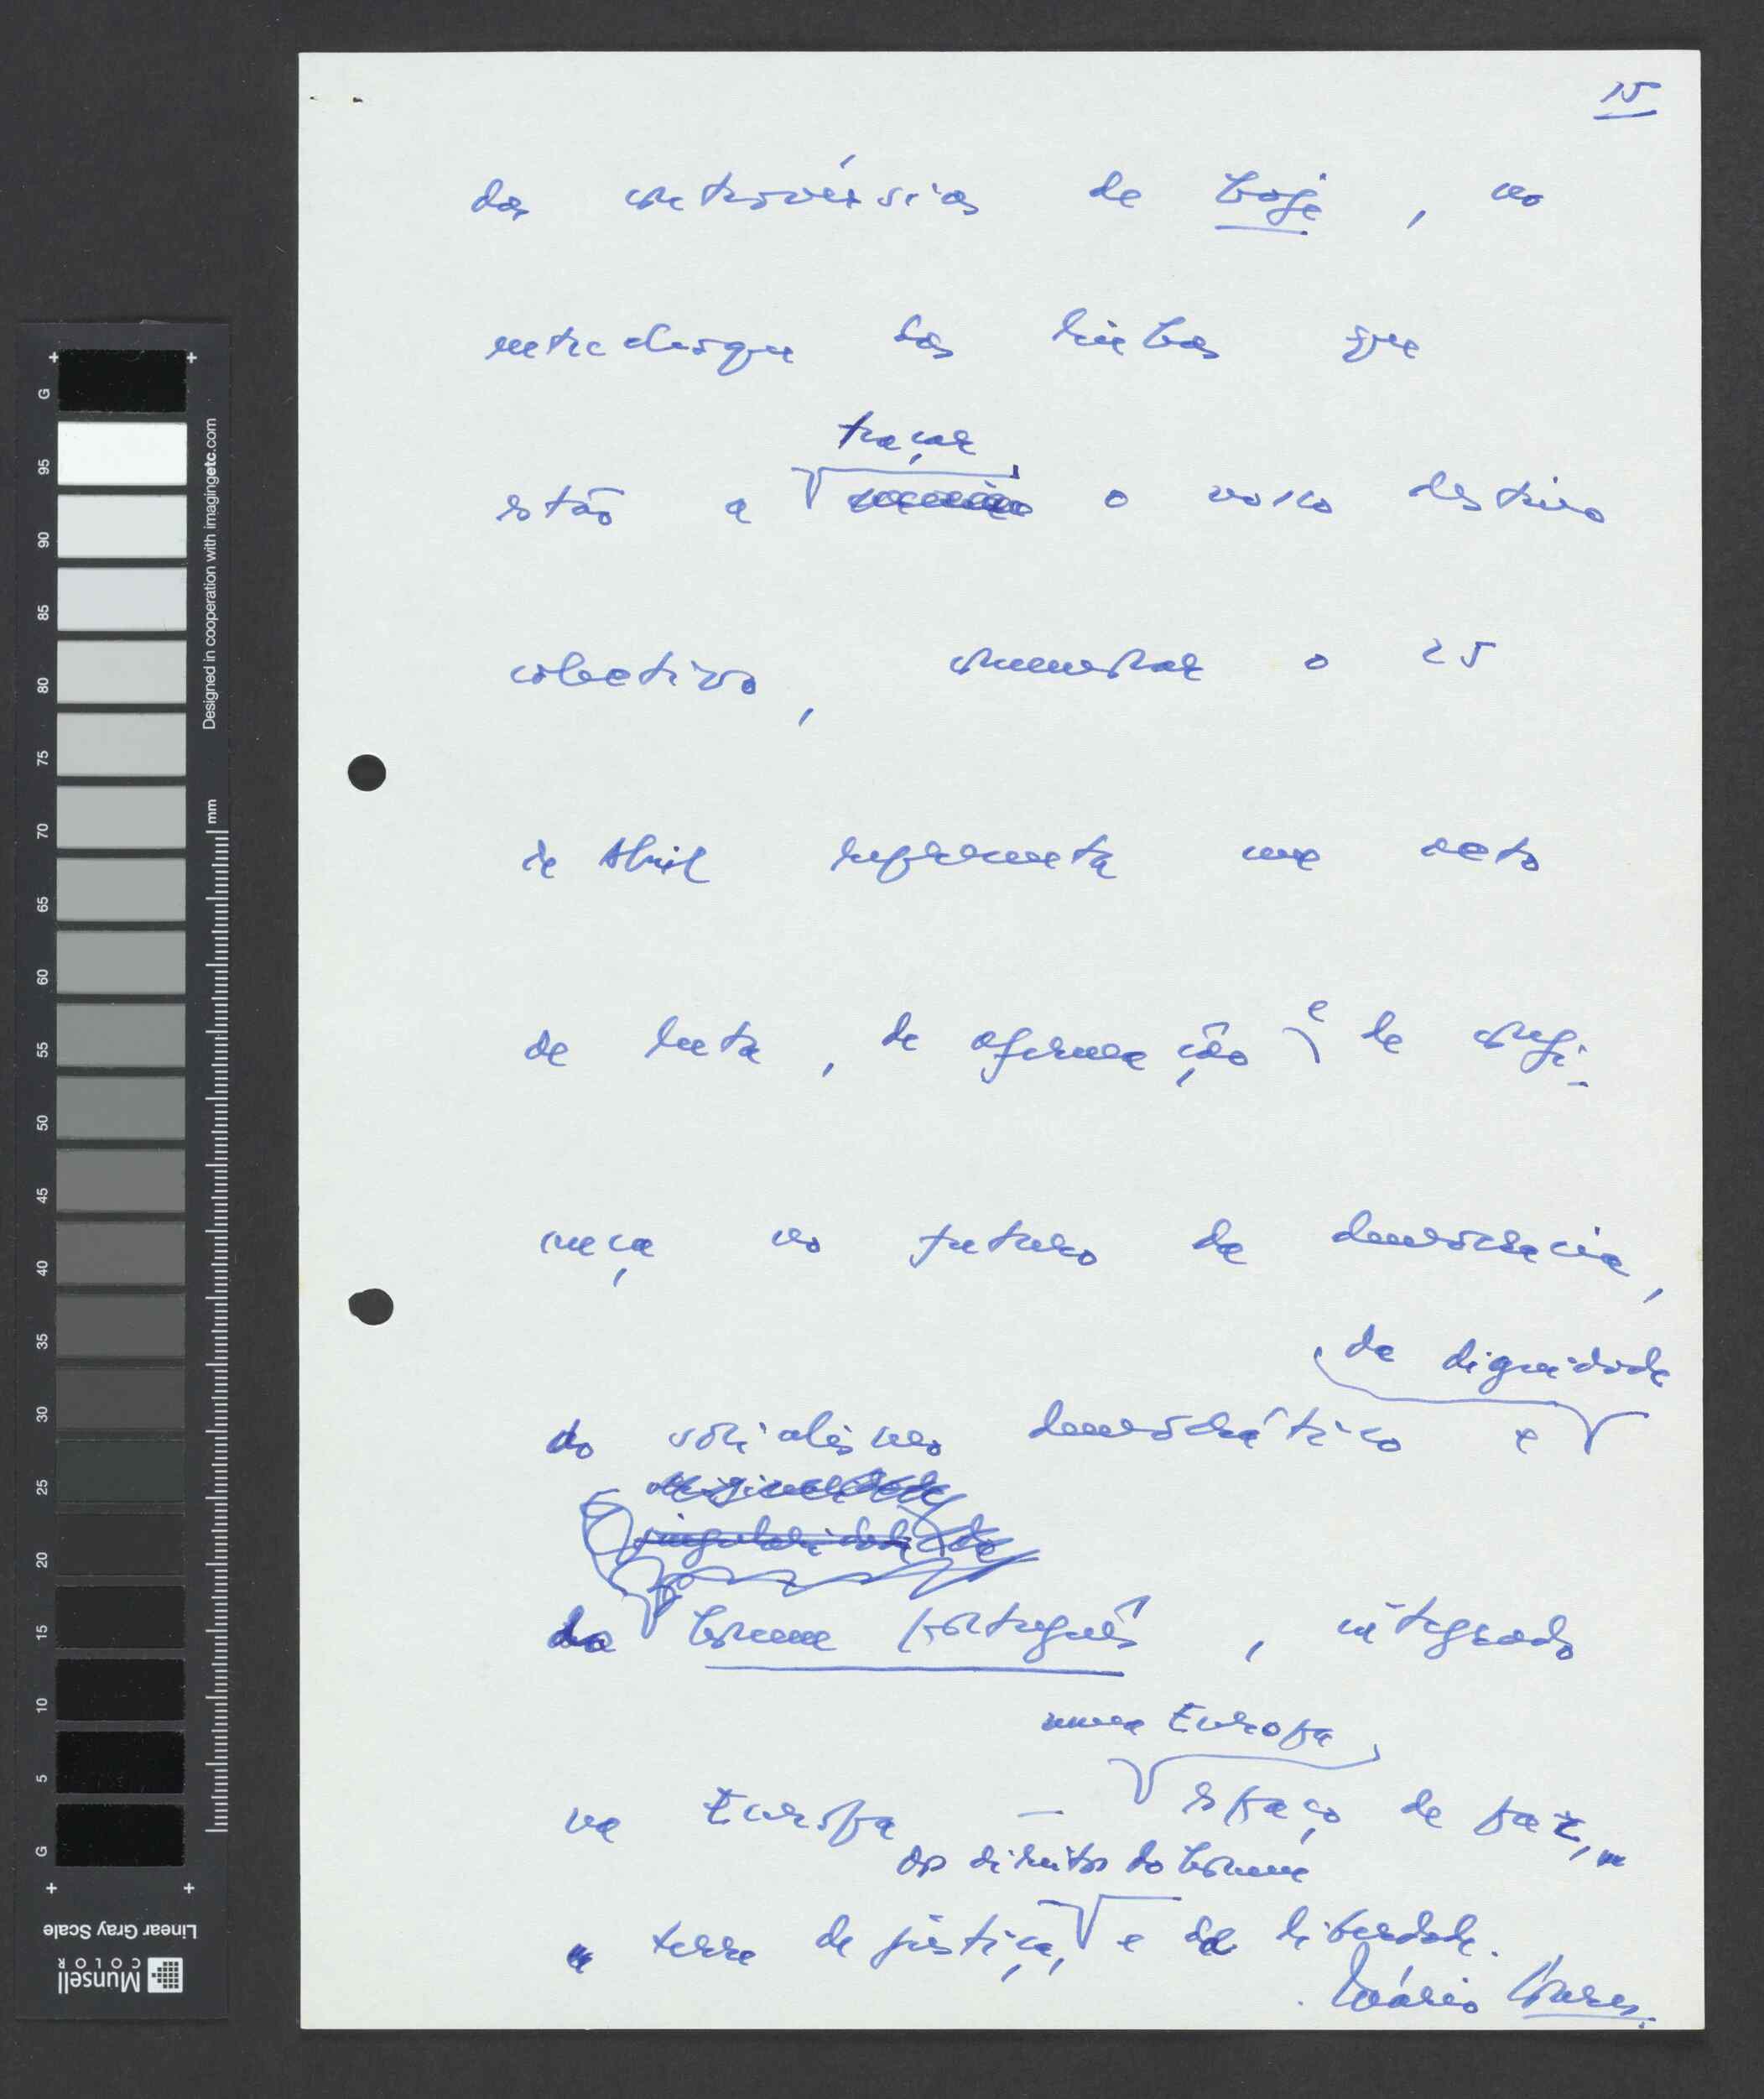 15
das controvérsias de hoje, no
entrechoque das linhas que
traçar
estão a o nosso destino
colectivo, comemorar o 25
de Abril representa um acto
de luta, de afirmação e de confi-
ança no futuro da democracia,
da dignidade
do socialismo democrático e
originalidade
singularidade do
do homem português, integrado
numa Europa
na Europa — espaço de paz,
dos direitos do homem
terra de justiça, e de liberdade.
Mário Soares.
G
95
90
85
80
75
70
65
60
55
50
45
40
35
30
25
20
15
10
5
G
Designed in cooperation with imagingetc.com
mm
Linear Gray Scale
Munsell
COLOR